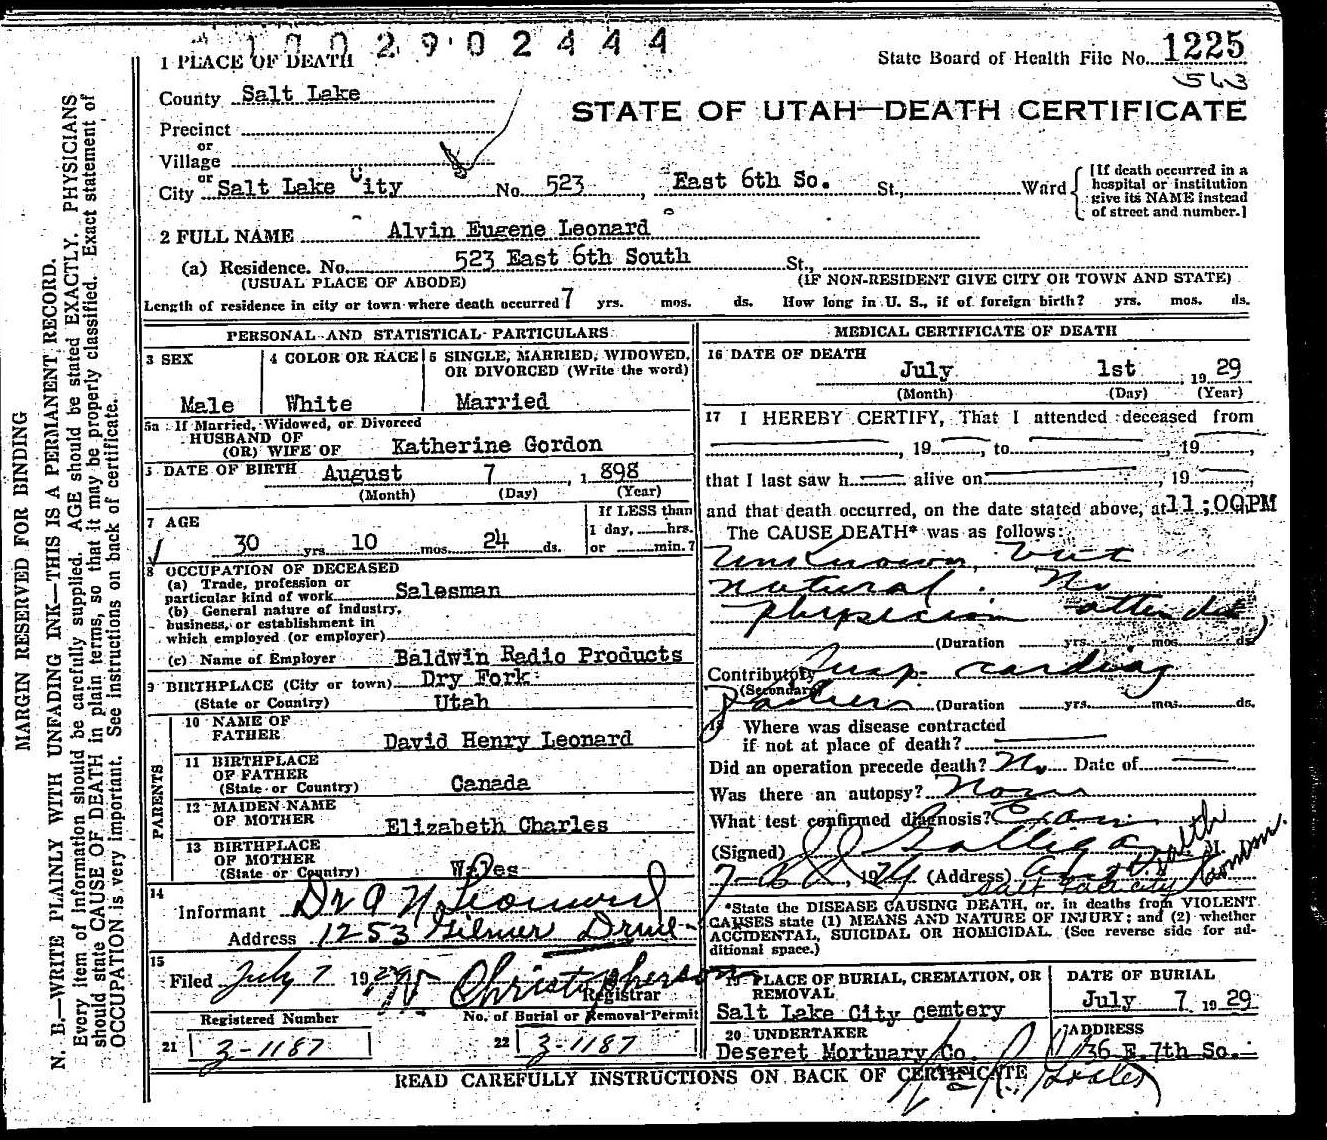 1 0 0 2 9 0 2 4 4 4
1 PLACE OF DEATH
State Board of Health File No. 1225
County Salt Lake
STATE OF UTAH—DEATH CERTIFICATE
Precinct
or
Village
or
City Salt Lake City No. 523, East 6th So. St., Ward
[If death occurred in a hospital or institution give its NAME instead of street and number.]
2 FULL NAME Alvin Eugene Leonard
(a) Residence. No. 523 East 6th South St.,
(USUAL PLACE OF ABODE) (IF NON-RESIDENT GIVE CITY OR TOWN AND STATE)
Length of residence in city or town where death occurred 7 yrs. mos. ds. How long in U. S., if of foreign birth? yrs. mos. ds.
PERSONAL AND STATISTICAL PARTICULARS
3 SEX
Male
4 COLOR OR RACE
White
5 SINGLE, MARRIED, WIDOWED,
OR DIVORCED (Write the word)
Married
5a If Married, Widowed, or Divorced
HUSBAND OF
(OR) WIFE OF Katherine Gordon
DATE OF BIRTH August 7, 1898
(Month) (Day) (Year)
7 AGE
30 yrs. 10 mos. 24 ds.
If LESS than
1 day, hrs.
or min.?
8 OCCUPATION OF DECEASED
(a) Trade, profession or
particular kind of work Salesman
(b) General nature of industry,
business, or establishment in
which employed (or employer)
(c) Name of Employer Baldwin Radio Products
9 BIRTHPLACE (City or town) Dry Fork
(State or Country) Utah
PARENTS
10 NAME OF
FATHER David Henry Leonard
11 BIRTHPLACE
OF FATHER
(State or Country) Canada
12 MAIDEN NAME
OF MOTHER Elizabeth Charles
13 BIRTHPLACE
OF MOTHER
(State or Country) Wales
14
Informant Dr A N Leonard
Address 1253 Gilmer Drive
15
Filed July 7 1929 Christopherson
Registrar
Registered Number
21 3-1187
No. of Burial or Removal Permit
22 3-1187
MEDICAL CERTIFICATE OF DEATH
16 DATE OF DEATH
July 1st, 1929
(Month) (Day) (Year)
17 I HEREBY CERTIFY, That I attended deceased from
, 19, to, 19,
that I last saw h alive on, 19,
and that death occurred, on the date stated above, at 11:00PM
The CAUSE DEATH* was as follows:
Unknown, but
natural. No
physician attended
(Duration yrs. mos. ds.)
Contributory Susp. cardiac
(Secondary)
failure (Duration yrs. mos. ds.
18 Where was disease contracted
if not at place of death?
Did an operation precede death? No Date of
Was there an autopsy? None
What test confirmed diagnosis?
(Signed) M. D.
(Address) Health
Salt Lake City
*State the DISEASE CAUSING DEATH, or, in deaths from VIOLENT
CAUSES state (1) MEANS AND NATURE OF INJURY; and (2) whether
ACCIDENTAL, SUICIDAL OR HOMICIDAL. (See reverse side for ad-
ditional space.)
19 PLACE OF BURIAL, CREMATION, OR
REMOVAL
Salt Lake City Cemtery
DATE OF BURIAL
July 7 1929
20 UNDERTAKER
Deseret Mortuary Co.
ADDRESS
36 E. 7th So.
READ CAREFULLY INSTRUCTIONS ON BACK OF CERTIFICATE
MARGIN RESERVED FOR BINDING
N. B.—WRITE PLAINLY WITH UNFADING INK—THIS IS A PERMANENT RECORD.
Every item of information should be carefully supplied. AGE should be stated EXACTLY. PHYSICIANS
should state CAUSE OF DEATH in plain terms, so that it may be properly classified. Exact statement of
OCCUPATION is very important. See instructions on back of certificate.